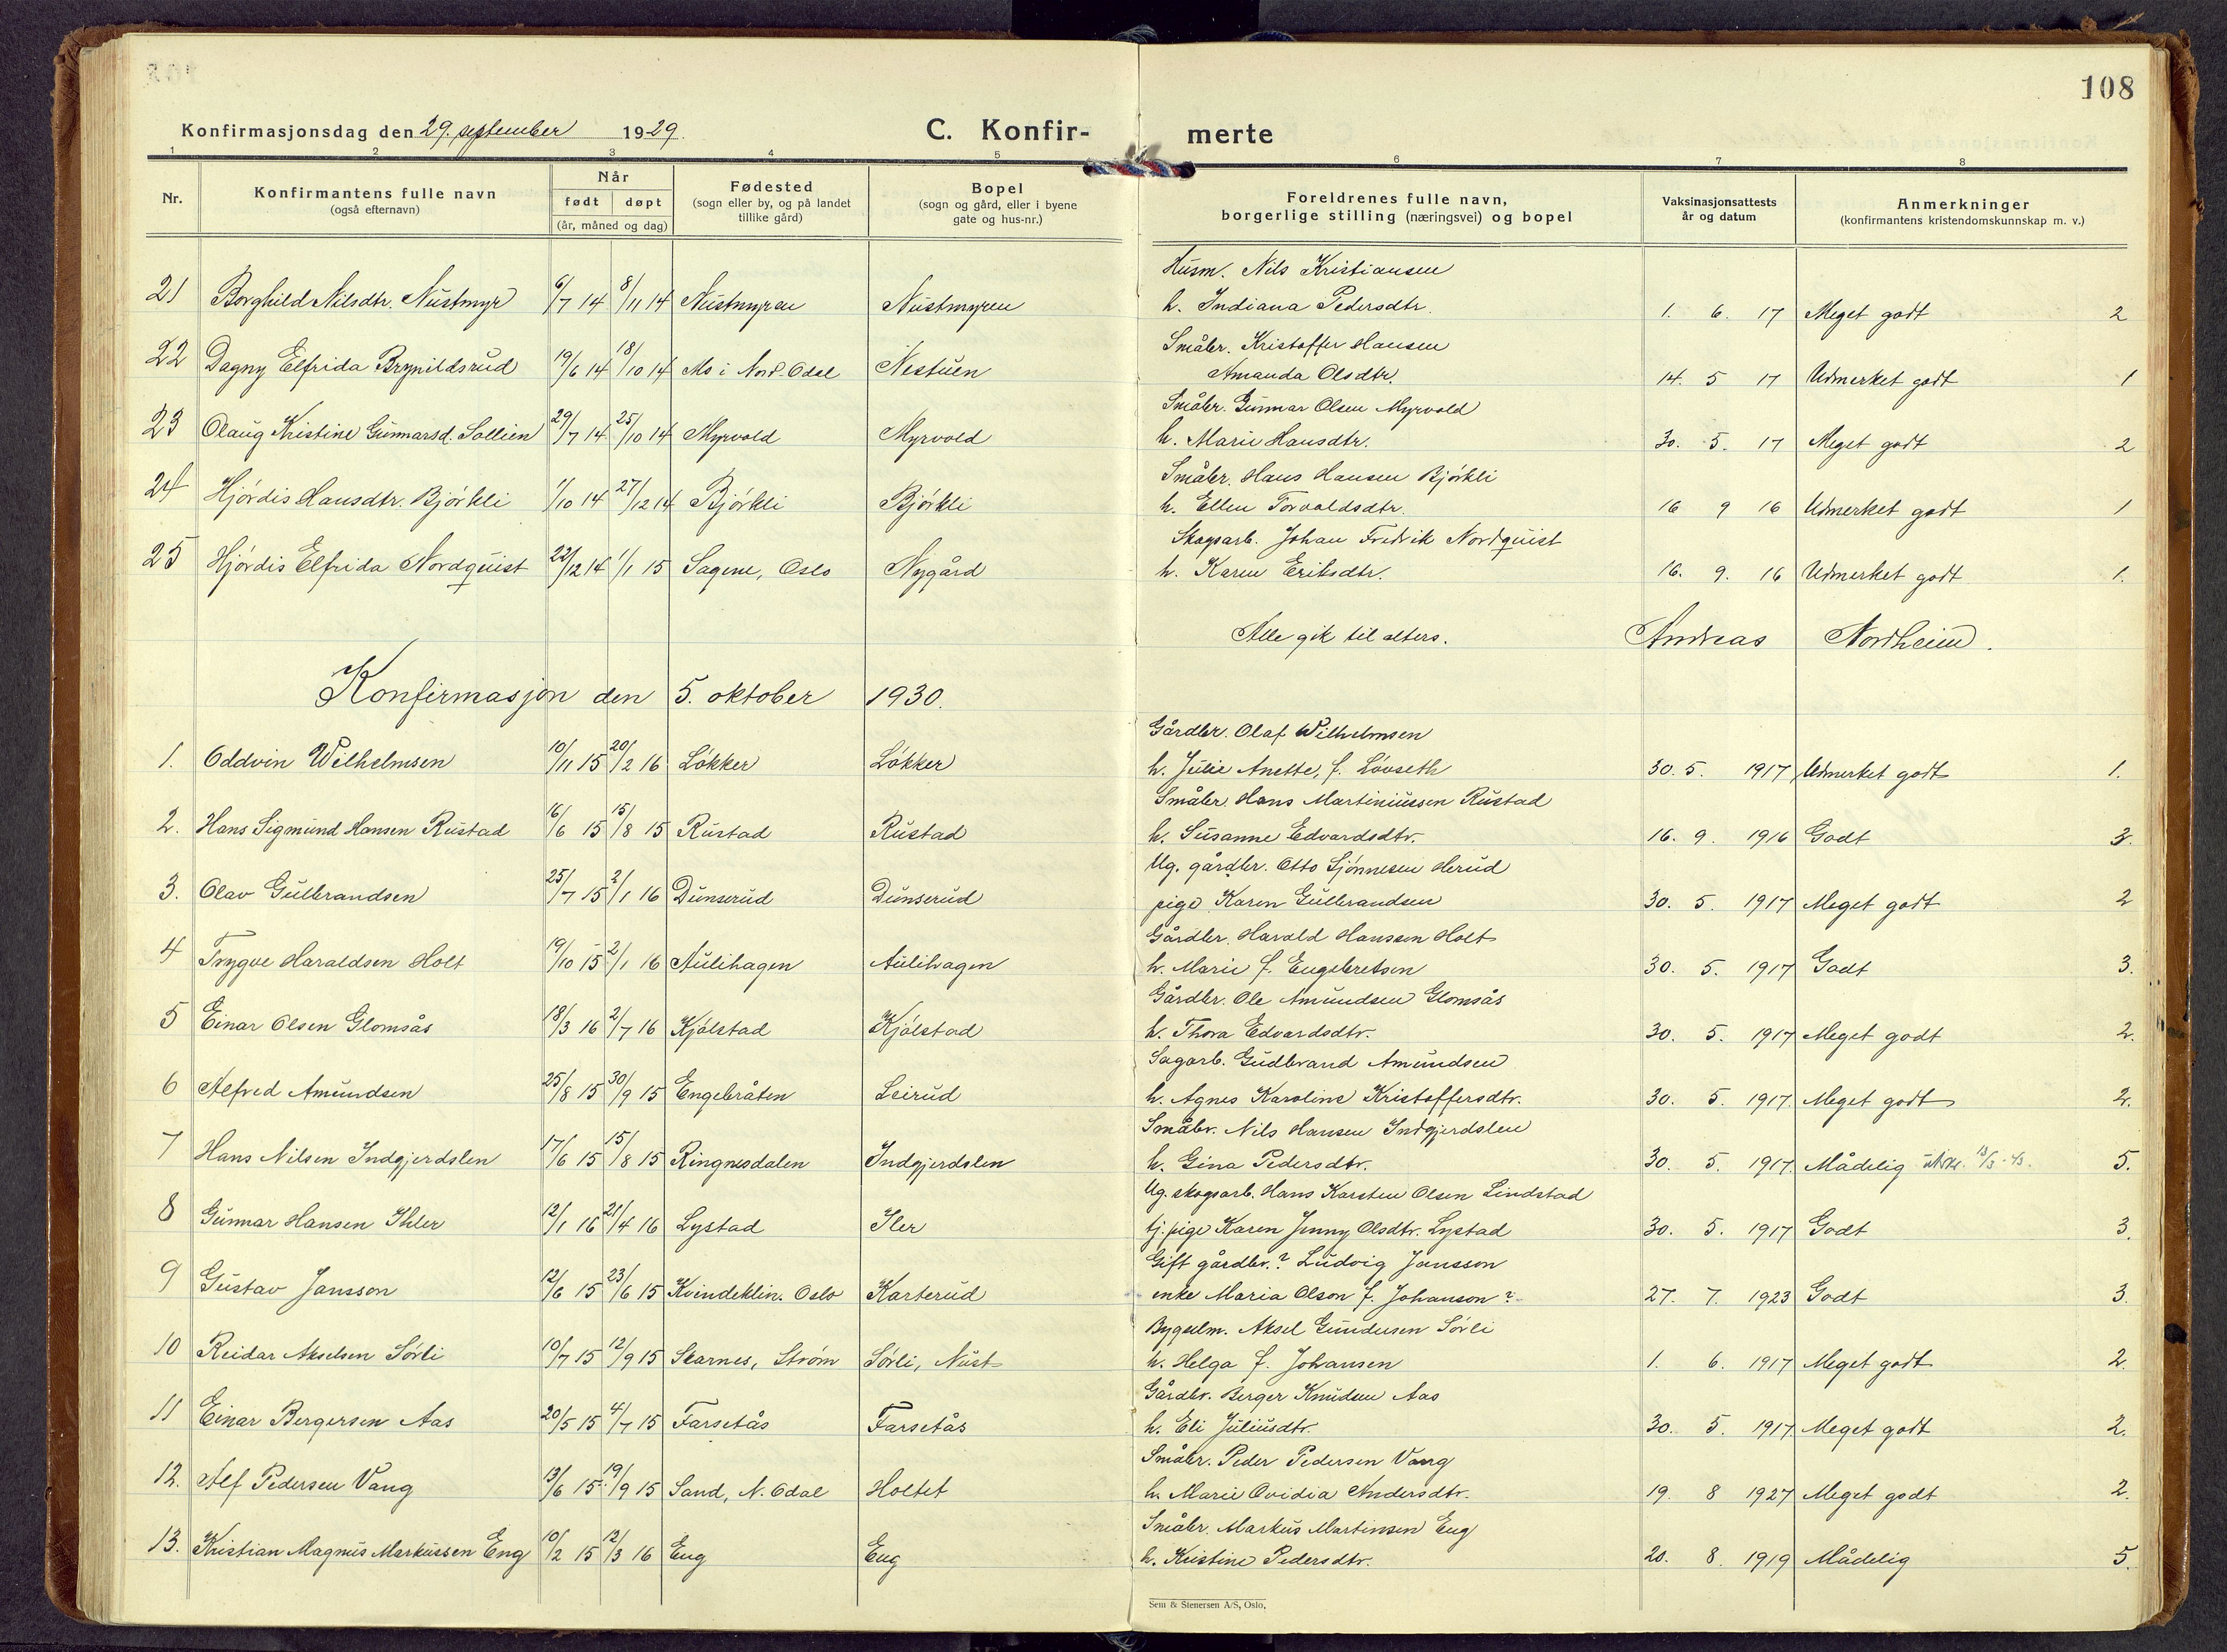 108
Konfirmasjonsdag den 29. september 1929.
C. Konfir- merte
1 2 3 4 5 6 7 8
Nr.
Konfirmantens fulle navn
(også efternavn)
Når
født døpt
(år, måned og dag)
Fødested
(sogn eller by, og på landet
tillike gård)
Bopel
(sogn og gård, eller i byene
gate og hus-nr.)
Foreldrenes fulle navn,
borgerlige stilling (næringsvei) og bopel
Vaksinasjonsattests
år og datum
Anmerkninger
(konfirmantens kristendomskunnskap m. v.)
Husm. Nils Kristiansen
21 Borghild Nilsdtr. Nustmyr 6/7 14 8/11 14 Nustmyren Nustmyren h. Indiana Pedersdtr. 1. 6. 17 Meget godt 2
Småbr. Kristoffer Hansen
22 Dagny Elfrida Brynildsrud 19/6 14 18/10 14 Mo i Nord-Odal Nestuen Amanda Olsdtr. 14. 5 17 Udmerket godt 1
Småbr. Gunnar Olsen Myrvold
23 Olaug Kristine Gunnarsd. Sollien 29/7 14 25/10 14 Myrvold Myrvold h. Marie Hansdtr. 30. 5. 17 Meget godt 2
Småbr. Hans Hansen Bjørkli
24 Hjørdis Hansdtr. Bjørkli 1/10 14 27/12 14 Bjørkli Bjørkli h. Ellen Torvaldsdtr. 16 9 16 Udmerket godt 1
Skogsarb. Johan Fredrik Nordquist
25 Hjørdis Elfrida Nordquist 22/12 14 1/1 15 Sagene, Oslo Nygård h. Karen Eriksdtr. 16. 9. 16 Udmerket godt 1.
Alle gik til alters. Andreas Nordheim.
Konfirmasjon den 5. oktober 1930.
Gårdbr. Olaf Wilhelmsen
1. Oddvin Wilhelmsen 10/11 15 20/2 16 Løkker Løkker h. Julie Anette, f. Løvseth 30. 5. 1917 Udmerket godt 1.
Småbr. Hans Martiniussen Rustad
2. Hans Sigmund Hansen Rustad 16/6 15 15/8 15 Rustad Rustad h. Susanne Edvardsdtr. 16. 9. 1916 Godt 3.
Ug. gårdbr. Otto Sjønnesen Herud
3. Olav Gulbrandsen 25/7 15 2/1 16 Dunserud Dunserud pige Karen Gulbrandsen 30. 5. 1917 Meget godt 2
Gårdbr. Harald Hansen Holt
4 Trygve Haraldsen Holt 19/10 15 2/1 16 Aulihagen Aulihagen h. Marie f. Engebretsen 30. 5. 1917 Godt 3.
Gårdbr. Ole Amundsen Glomsås
5 Einar Olsen Glomsås 18/3 16 2/7 16 Kjølstad Kjølstad h. Thora Edvardsdtr. 30. 5. 1917 Meget godt 2.
Sagarb. Gudbrand Amundsen
6 Alfred Amundsen 25/8 15 30/9 15 Engebråten Leirud h. Agnes Karoline Kristoffersdtr. 30. 5. 1917. Meget godt 2.
Småbr. Nils Hansen Indgjerdslen
7 Hans Nilsen Indgjerdslen 17/6 15 15/8 15 Ringnesdalen Indgjerdslen h. Gina Pedersdtr. 30. 5. 1917. Mådelig 5.
Ug. skogsarb. Hans Karsten Olsen Lindstad
8 Gunnar Hansen Ihler 12/1 16 21/4 16 Lystad Iler tj. pige Karen Jenny Olsdtr. Lystad 30. 5. 1917 Godt 3.
Gift gårdbr.? Ludvig Jansson
9 Gustav Jansson 12/6 15 23/6 15 Kvindeklin. Oslo Karterud enke Maria Olson f. Johanson? 27. 7. 1923 Godt 3.
Bygselm. Aksel Gundersen Sørli
10 Reidar Akselsen Sørli 10/7 15 12/9 15 Skarnes, Strøm Sørli, Nust h. Helga f. Johansen 1. 6. 1917 Meget godt 2.
Gårdbr. Berger Knudsen Aas
11 Einar Bergersen Aas 20/5 15 4/7 15 Farsetås Farsetås h. Eli Juliusdtr. 30. 5. 1917. Meget godt 2.
Småbr. Peder Pedersen Vang
12. Alf Pedersen Vang 13/6 15 19/9 15 Sand, N. Odal Holtet h. Marie Ovidia Andersdtr. 19. 8 1927 Meget godt 2.
Småbr. Markus Martinsen Eng
13. Kristian Magnus Markussen Eng 10/2 15 12/3 16 Eng Eng h. Kristine Pedersdtr. 20. 8. 1919 Mådelig 5.
Sem & Stenersen A/S, Oslo,